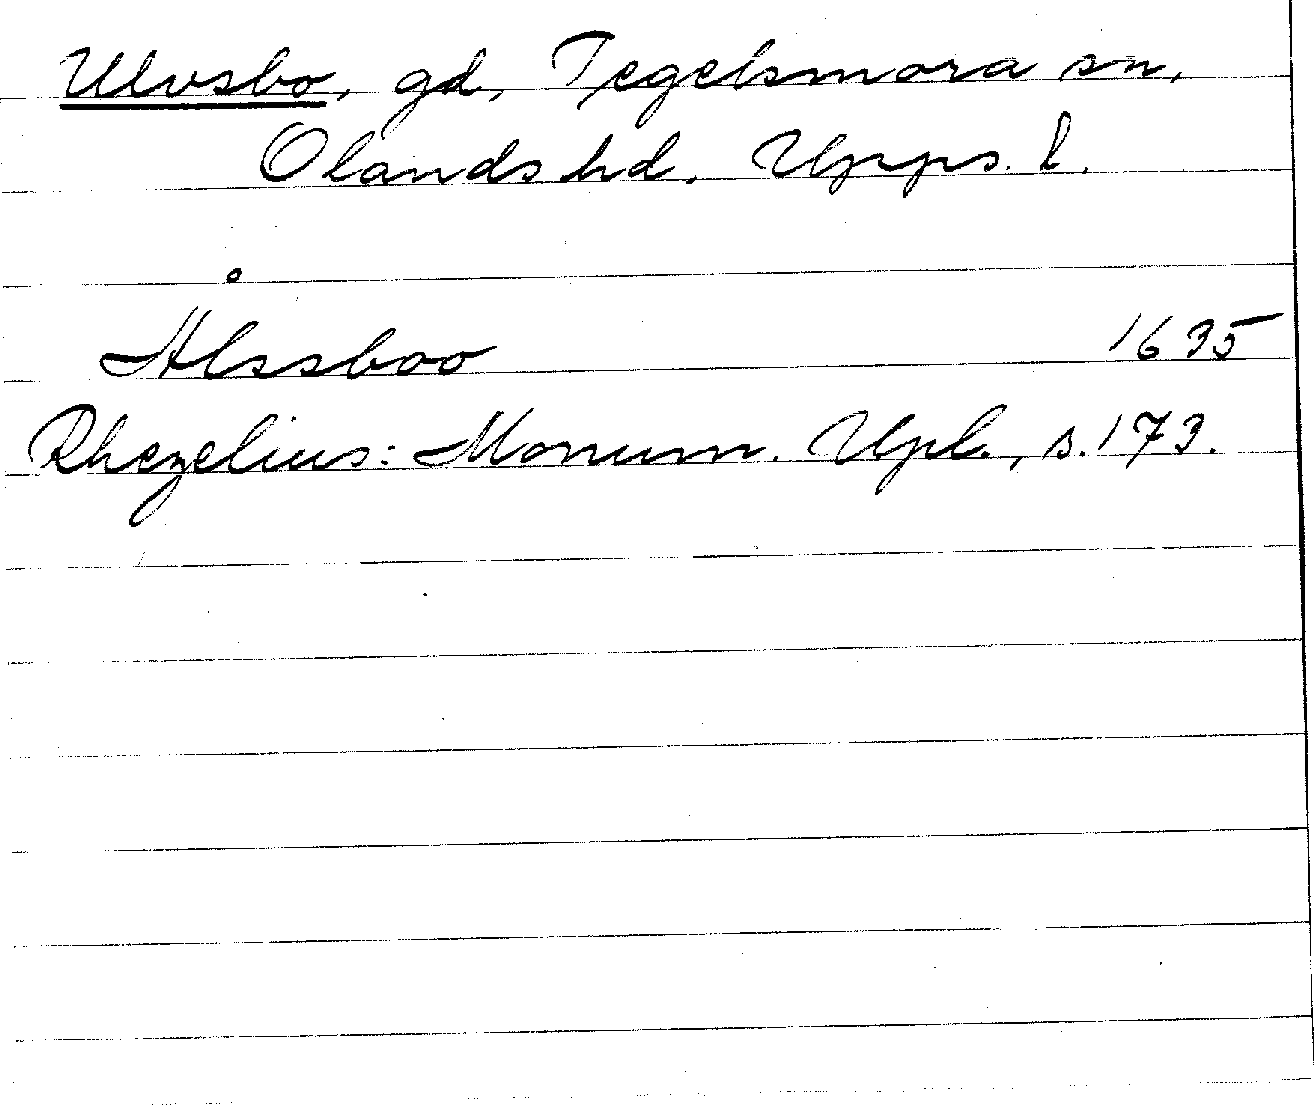 Ulvsbo, gd, Tegelsmora sn,
Olands hd. Upps. l.
Ålssboo 1635
Rhezelius: Monum. Upl., s. 173.